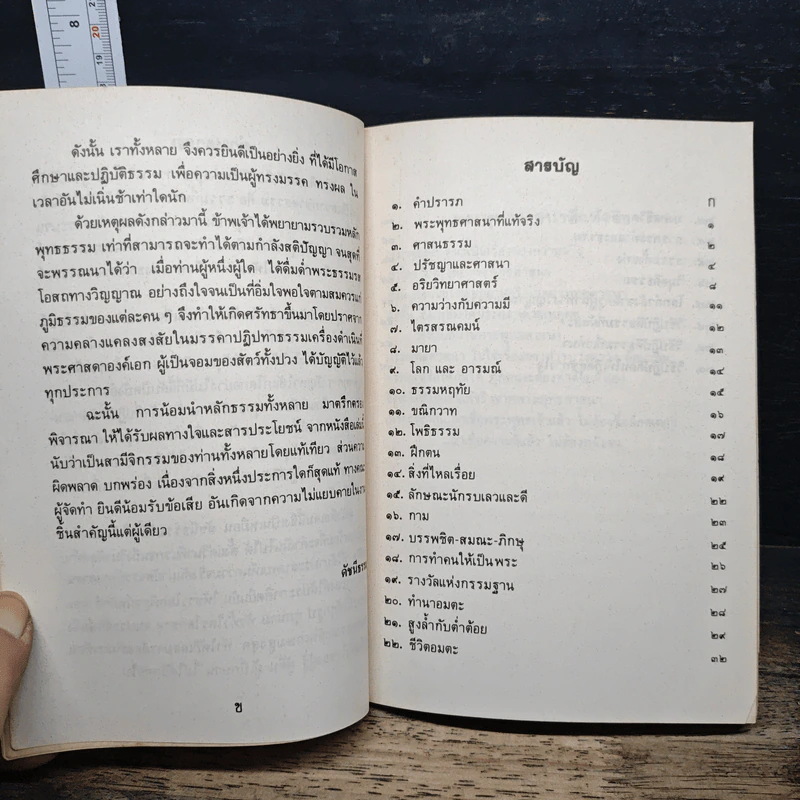 8
20
19
18
ดังนั้น เราทั้งหลาย จึงควรยินดีเป็นอย่างยิ่ง ที่ได้มีโอกาส
ศึกษาและปฏิบัติธรรม เพื่อความเป็นผู้ทรงมรรค ทรงผล ใน
เวลาอันไม่เนิ่นช้าเท่าใดนัก
ด้วยเหตุผลดังกล่าวมานี้ ข้าพเจ้าได้พยายามรวบรวมหลัก
พุทธธรรม เท่าที่สามารถจะทำได้ตามกำลังสติปัญญา จนสุดที่
จะพรรณนาได้ว่า เมื่อท่านผู้หนึ่งผู้ใด ได้ดื่มด่ำพระธรรมรส
โอสถทางวิญญาณ อย่างถึงใจจนเป็นที่อิ่มใจพอใจตามสมควรแก่
ภูมิธรรมของแต่ละคน ๆ จึงทำให้เกิดศรัทธาขึ้นมาโดยปราศจาก
ความคลางแคลงสงสัยในมรรคาปฏิปทาธรรมเครื่องดำเนินที่
พระศาสดาองค์เอก ผู้เป็นจอมของสัตว์ทั้งปวง ได้บัญญัติไว้แล้ว
ทุกประการ
ฉะนั้น การน้อมนำหลักธรรมทั้งหลาย มาตรึกตรอง
พิจารณา ให้ได้รับผลทางใจและสารประโยชน์ จากหนังสือเล่มนี้
นับว่าเป็นสามีจิกรรมของท่านทั้งหลายโดยแท้เทียว ส่วนความ
ผิดพลาด บกพร่อง เนื่องจากสิ่งหนึ่งประการใดก็สุดแท้ ทางคณะ
ผู้จัดทำ ยินดีน้อมรับข้อเสีย อันเกิดจากความไม่แยบคายในงาน
ชิ้นสำคัญนี้แต่ผู้เดียว
ข
สารบัญ
๑. คำปรารภ ก
๒. พระพุทธศาสนาที่แท้จริง ๑
๓. ศาสนธรรม ๒
๔. ปรัชญาและศาสนา ๔
๕. อริยวิทยาศาสตร์ ๘
๖. ความว่างกับความมี ๑๑
๗. ไตรสรณคมน์ ๑๒
๘. มายา ๑๓
๙. โลก และ อารมณ์ ๑๔
๑๐. ธรรมหฤทัย ๑๕
๑๑. ขณิกวาท ๑๖
๑๒. โพธิธรรม ๑๗
๑๓. ฝึกตน ๑๘
๑๔. สิ่งที่ไหลเรื่อย ๑๙
๑๕. ลักษณะนักรบเลวและดี ๒๒
๑๖. กาม ๒๓
๑๗. บรรพชิต-สมณะ-ภิกษุ ๒๕
๑๘. การทำคนให้เป็นพระ ๒๖
๑๙. รางวัลแห่งกรรมฐาน ๒๗
๒๐. ทำนาอมตะ ๒๘
๒๑. สูงล้ำกับต่ำต้อย ๒๙
๒๒. ชีวิตอมตะ ๓๒